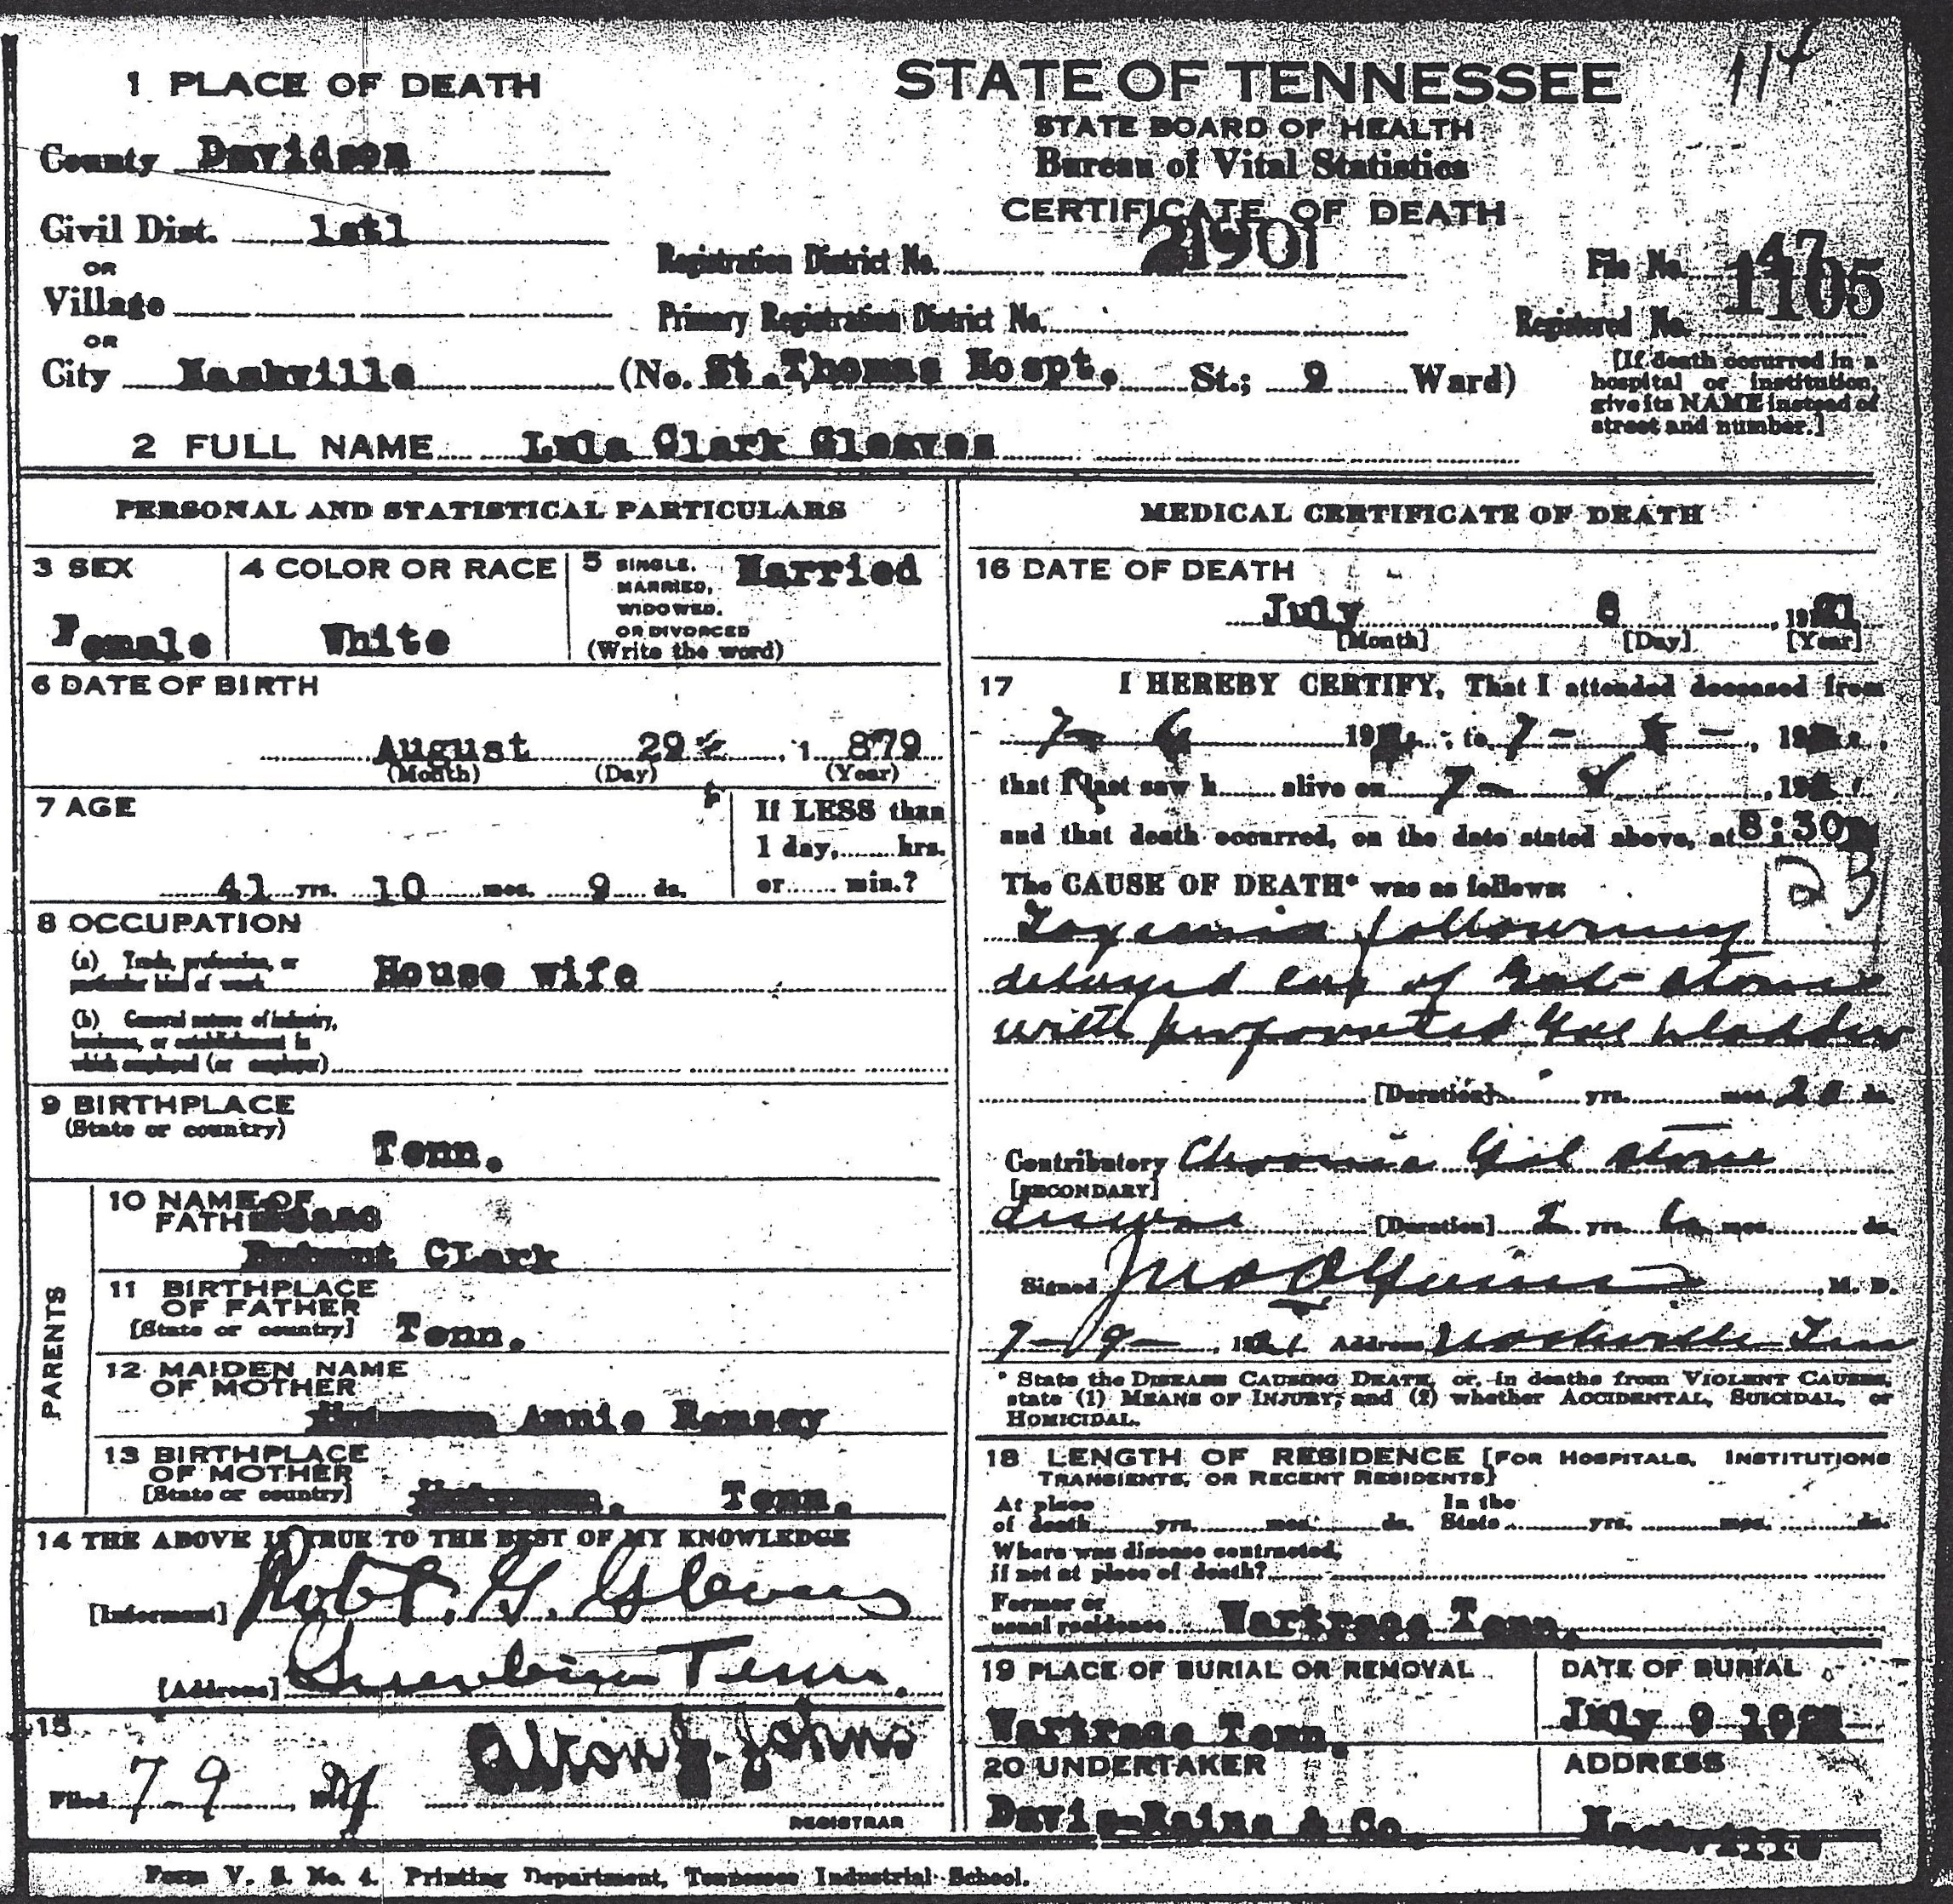 114
STATE OF TENNESSEE
STATE BOARD OF HEALTH
Bureau of Vital Statistics
CERTIFICATE OF DEATH
1 PLACE OF DEATH
County Davidson
Civil Dist.
OR
Village
OR
City Nashville (No. St. Thomas Hospt. St.; 9 Ward)
Registration District No. 21901
Primary Registration District No.
File No. 47
Registered No. 1105
[If death occurred in a
hospital or institution,
give its NAME instead of
street and number.]
2 FULL NAME Lula Clark Gleaves
PERSONAL AND STATISTICAL PARTICULARS
3 SEX
Female
4 COLOR OR RACE
White
5 SINGLE,
MARRIED,
WIDOWED,
OR DIVORCED
(Write the word)
Married
6 DATE OF BIRTH
August 29, 1879
(Month) (Day) (Year)
7 AGE
41 yrs. 10 mos. 9 ds.
If LESS than
1 day, hrs.
or min.?
8 OCCUPATION
(a) Trade, profession, or
particular kind of work House wife
(b) General nature of industry,
business, or establishment in
which employed (or employer)
9 BIRTHPLACE
(State or country)
Tenn.
PARENTS
10 NAME OF
FATHER
CLark
11 BIRTHPLACE
OF FATHER
[State or country] Tenn.
12 MAIDEN NAME
OF MOTHER
Annie Ramsey
13 BIRTHPLACE
OF MOTHER
[State or country] Tenn.
14 THE ABOVE IS TRUE TO THE BEST OF MY KNOWLEDGE
[Informant] Robt. G. Gleaves
[Address] Tenn.
15
Filed 7 9, 1921 Alton J. Johns
REGISTRAR
MEDICAL CERTIFICATE OF DEATH
16 DATE OF DEATH
July 8, 1921
[Month] [Day] [Year]
17 I HEREBY CERTIFY, That I attended deceased from
7 - 6 1921, to 7 - 8 -, 1921,
that I last saw h alive on 7 - 8, 1921,
and that death occurred, on the date stated above, at 8:30
The CAUSE OF DEATH* was as follows:
123
Toxemia following
delayed case of Gall-stones
with perforated Gall bladder
[Duration] yrs. mos. ds.
Contributory Chronic Gall stone
[SECONDARY]
disease [Duration] yrs. 6 mos. ds.
Signed M. D.
7-9-, 1921 Address Nashville Tenn
* State the DISEASE CAUSING DEATH, or, in deaths from VIOLENT CAUSES,
state (1) MEANS OF INJURY; and (2) whether ACCIDENTAL, SUICIDAL, or
HOMICIDAL.
18 LENGTH OF RESIDENCE [FOR HOSPITALS, INSTITUTIONS
TRANSIENTS, OR RECENT RESIDENTS]
At place
of death yrs. mos. ds.
In the
State yrs. mos. ds.
Where was disease contracted,
if not at place of death?
Former or
usual residence Wartrace Tenn.
19 PLACE OF BURIAL OR REMOVAL
Wartrace Tenn.
DATE OF BURIAL
July 9 1921
20 UNDERTAKER
Davis-Rains & Co.
ADDRESS
Nashville
Form V. S. No. 4. Printing Department, Tennessee Industrial School.